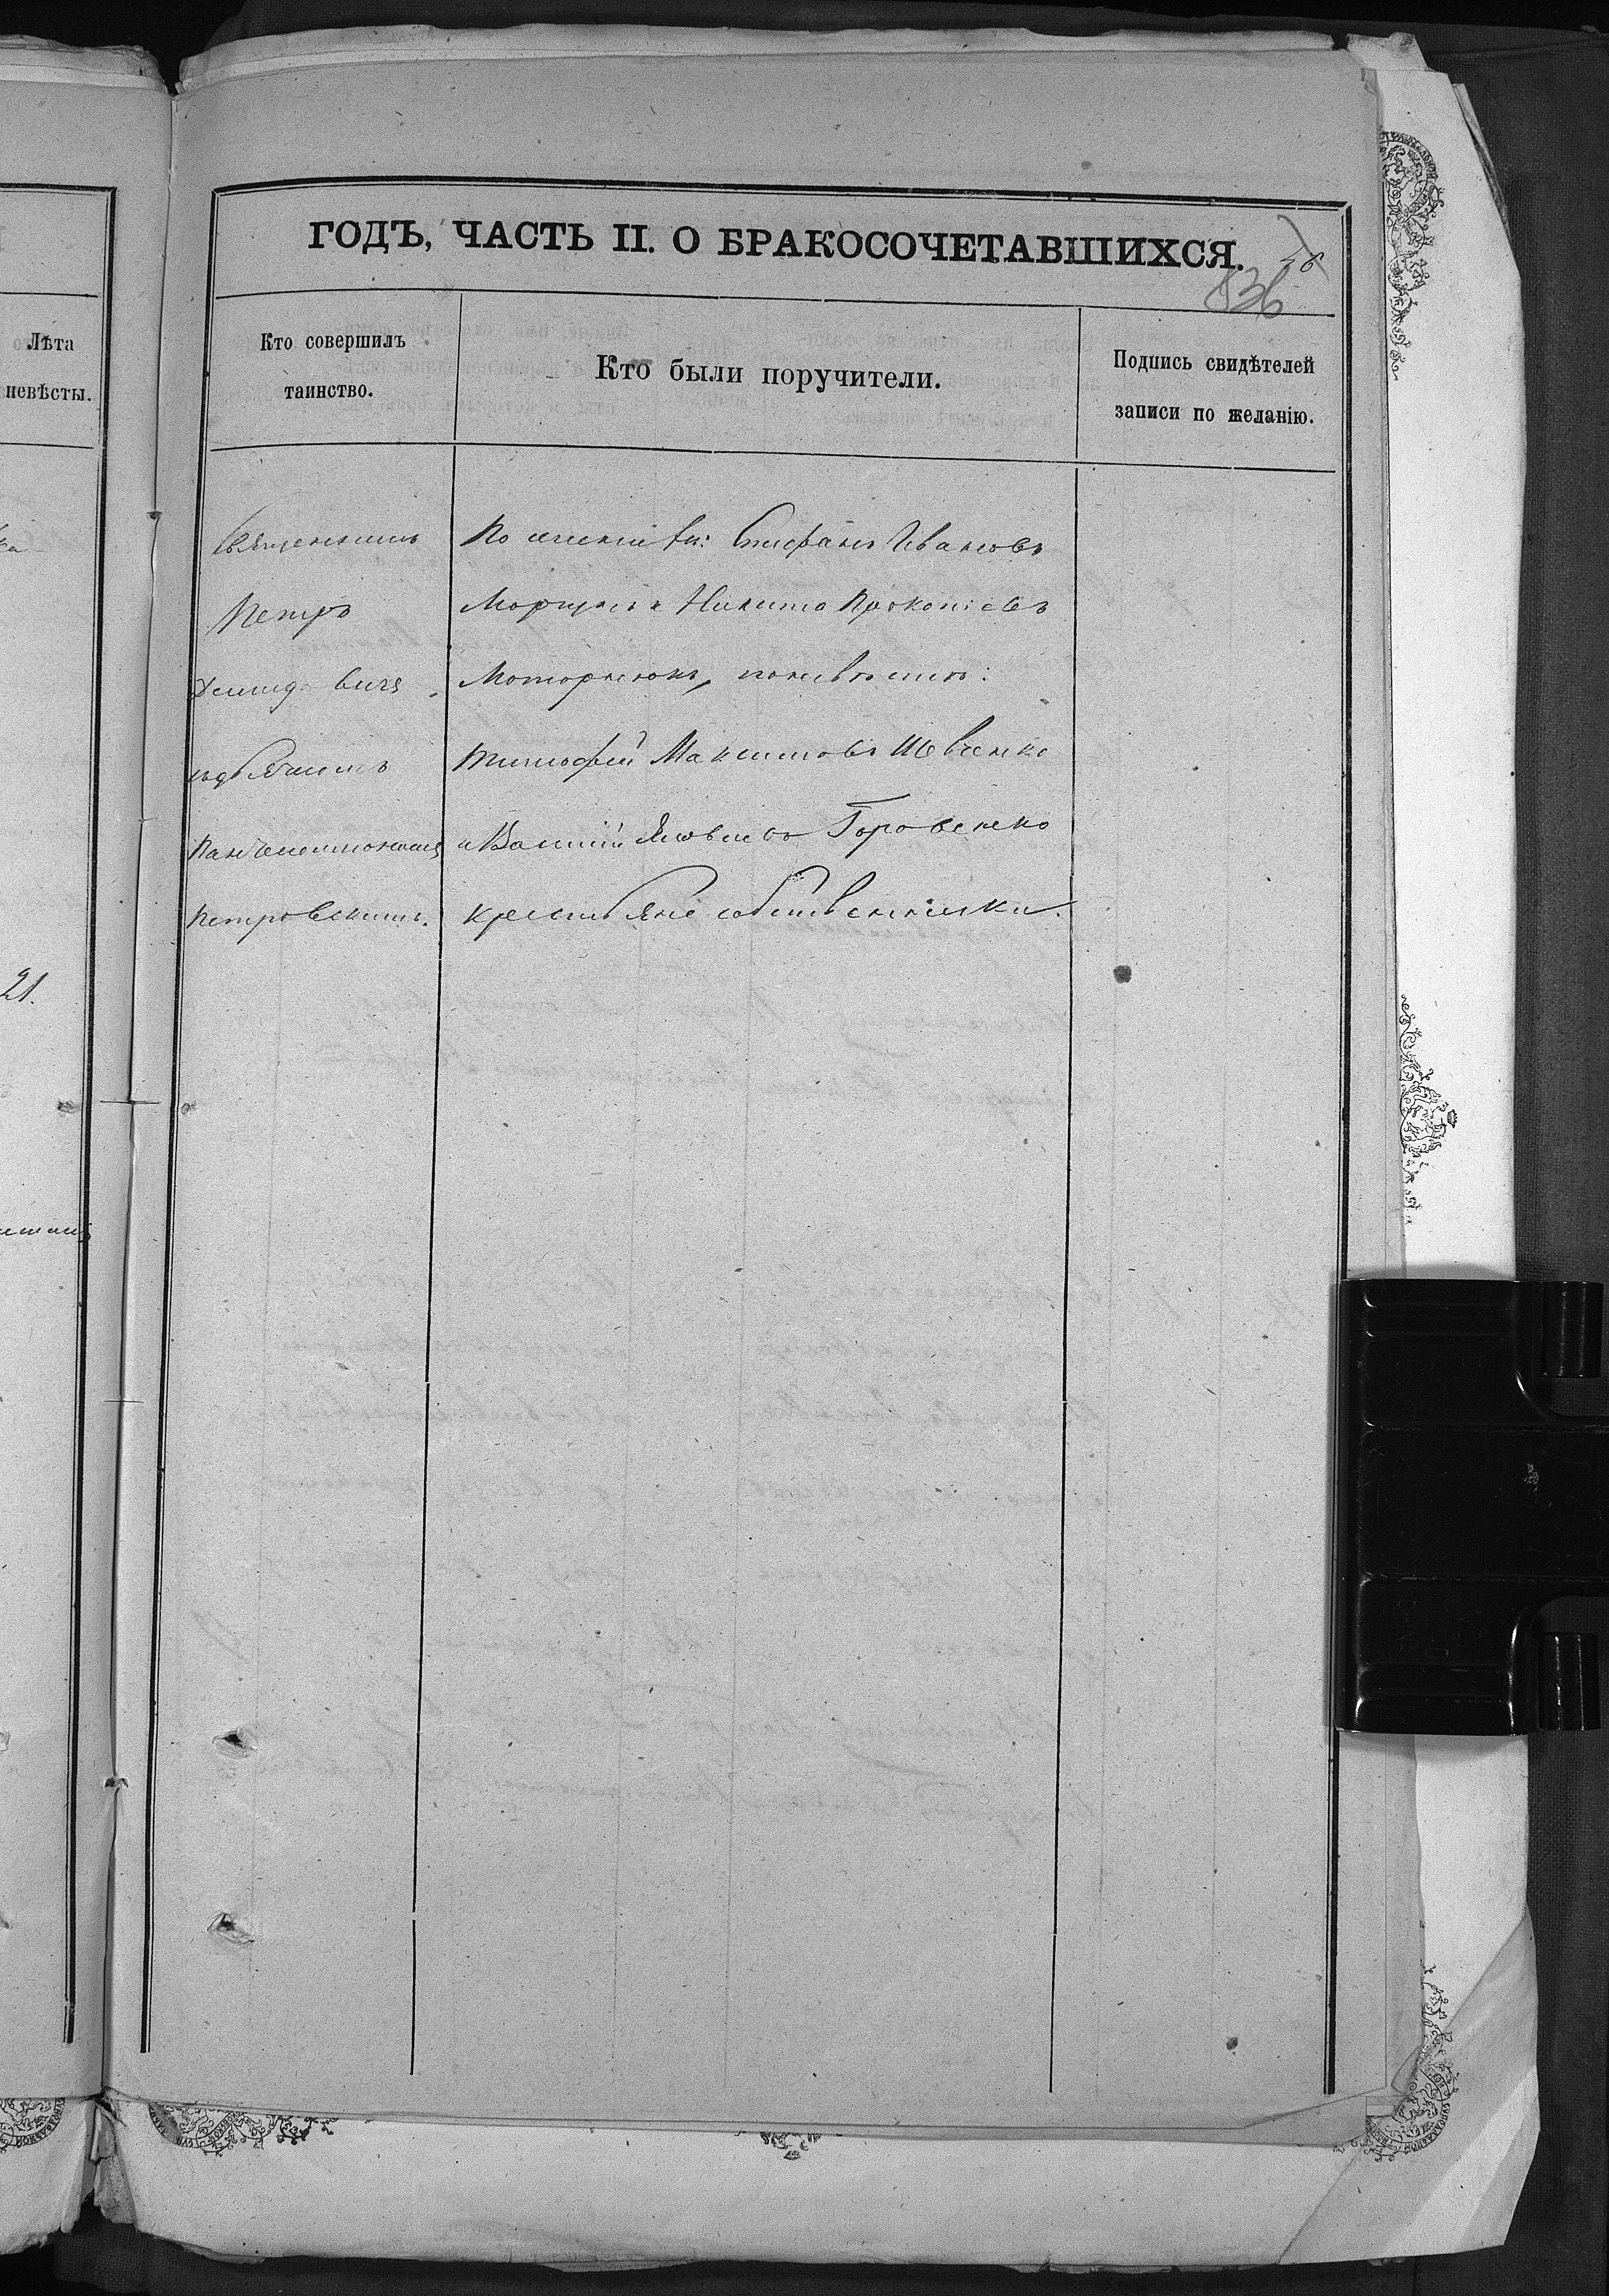 ГОДЪ, ЧАСТЬ II. О БРАКОСОЧЕТАВШИХСЯ.
836
Лѣта
невѣсты.
Кто совершилъ
таинство.
Кто были поручители.
Подпись свидѣтелей
записи по желанію.
Священникъ
Петръ
съ дьячкомъ
Петровскимъ.
По женихѣ: Стефанъ Ивановъ
и Никита Прокопіевъ
Моторнюкъ, по невѣстѣ:
Тимофей Максимовъ Шевченко
и Василій Яковлевъ Горовенко
крестьяне собственники.
21.